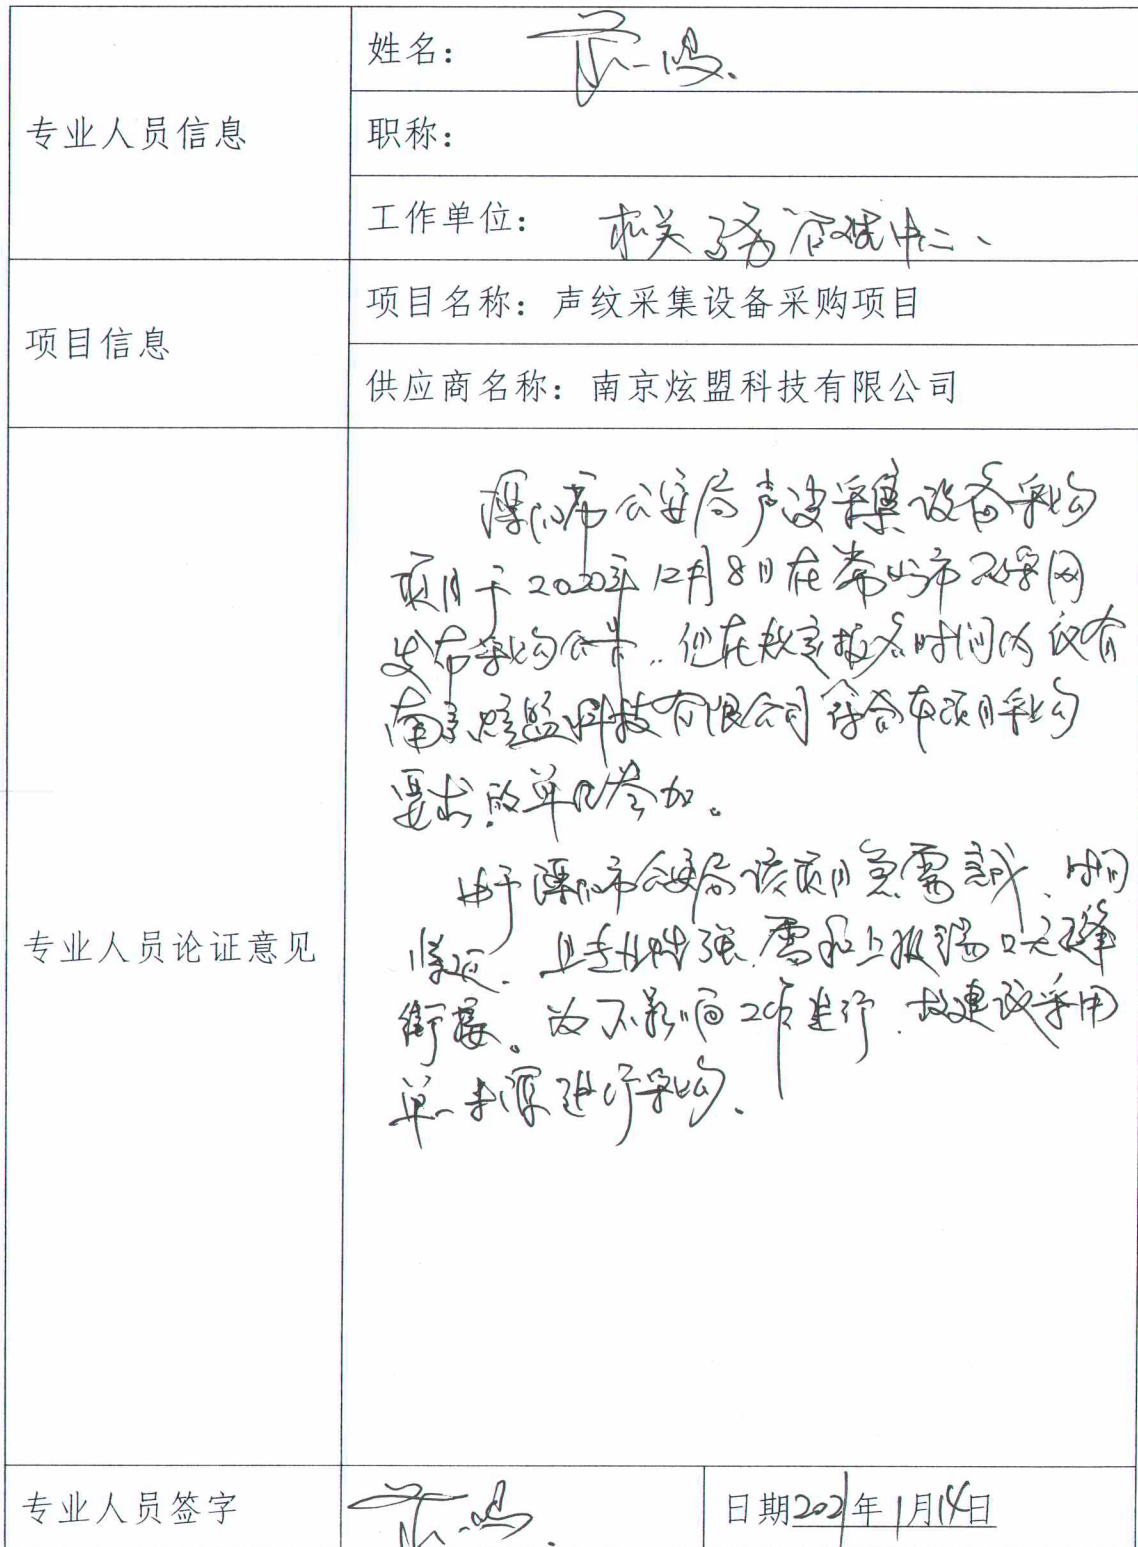 专业人员信息
姓名：
职称：
工作单位：机关事务管理中心
项目信息
项目名称：声纹采集设备采购项目
供应商名称：南京炫盟科技有限公司
专业人员论证意见
溧阳市公安局声波采集设备采购
项目于2020年12月8日在常州市政采网
发布采购公告，但在规定报名时间内仅有
南京炫盟科技有限公司符合本项目采购
要求的单位参加。
由于溧阳市公安局该项目急需完成，时间
紧迫，且专业性强，需和上报端口无缝
衔接。为不影响工作进行，故建议采用
单一来源进行采购。
专业人员签字
日期2021年1月14日